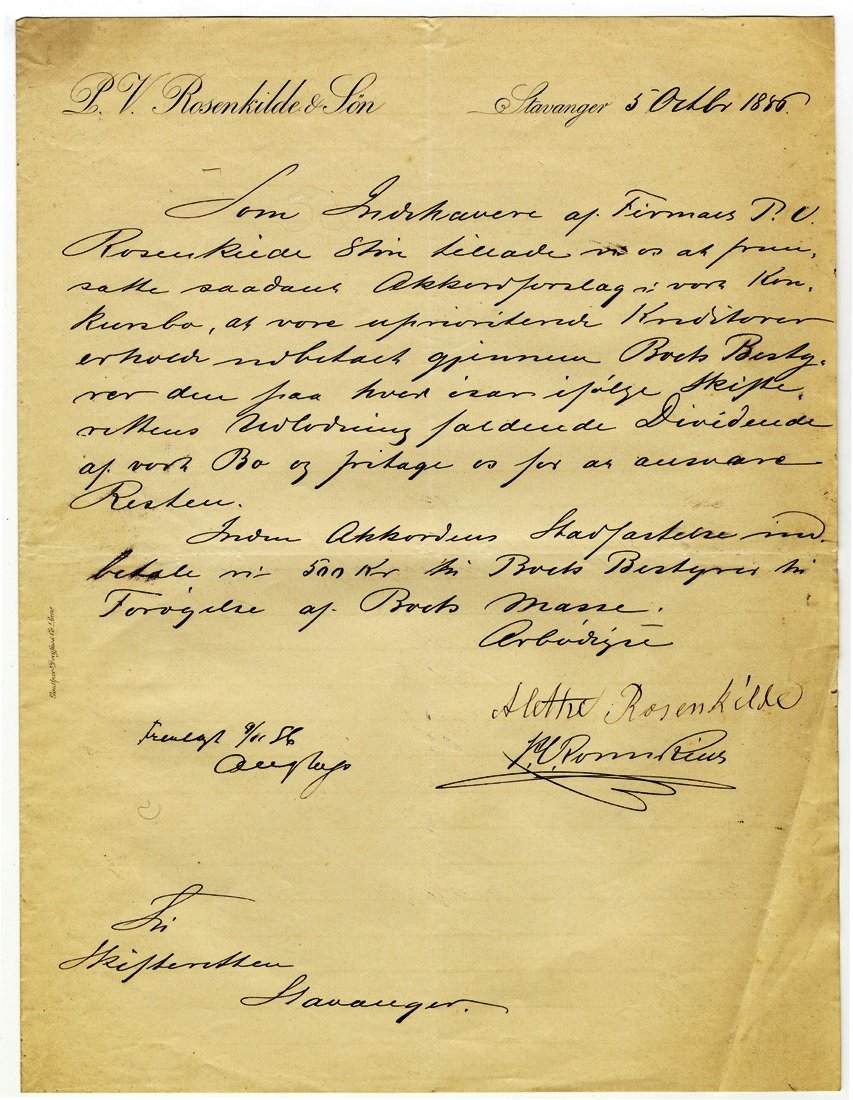 P. V. Rosenkilde & Søn Stavanger 5 Octbr 1886.
Som Indehavere af Firmaet P. V.
Rosenkilde & Søn tillade vi os at frem-
sætte saadant Akkordforslag i vort Kon-
kursbo, at vore uprioriterede Kreditorer
erholde udbetalt gjennem Boets Besty-
rer den paa hver især ifølge Skifte-
rettens Udlodning faldende Dividende
af vort Bo og fritage os for at ansvare
Resten.
Inden Akkordens Stadfæstelse ind-
betale vi 500 Kr til Boets Bestyrer til
Forøgelse af Boets Masse.
Ærbødigst
Alethe Rosenkilde
Fremlagt 9/11 86
Til
Skifteretten
Stavanger.